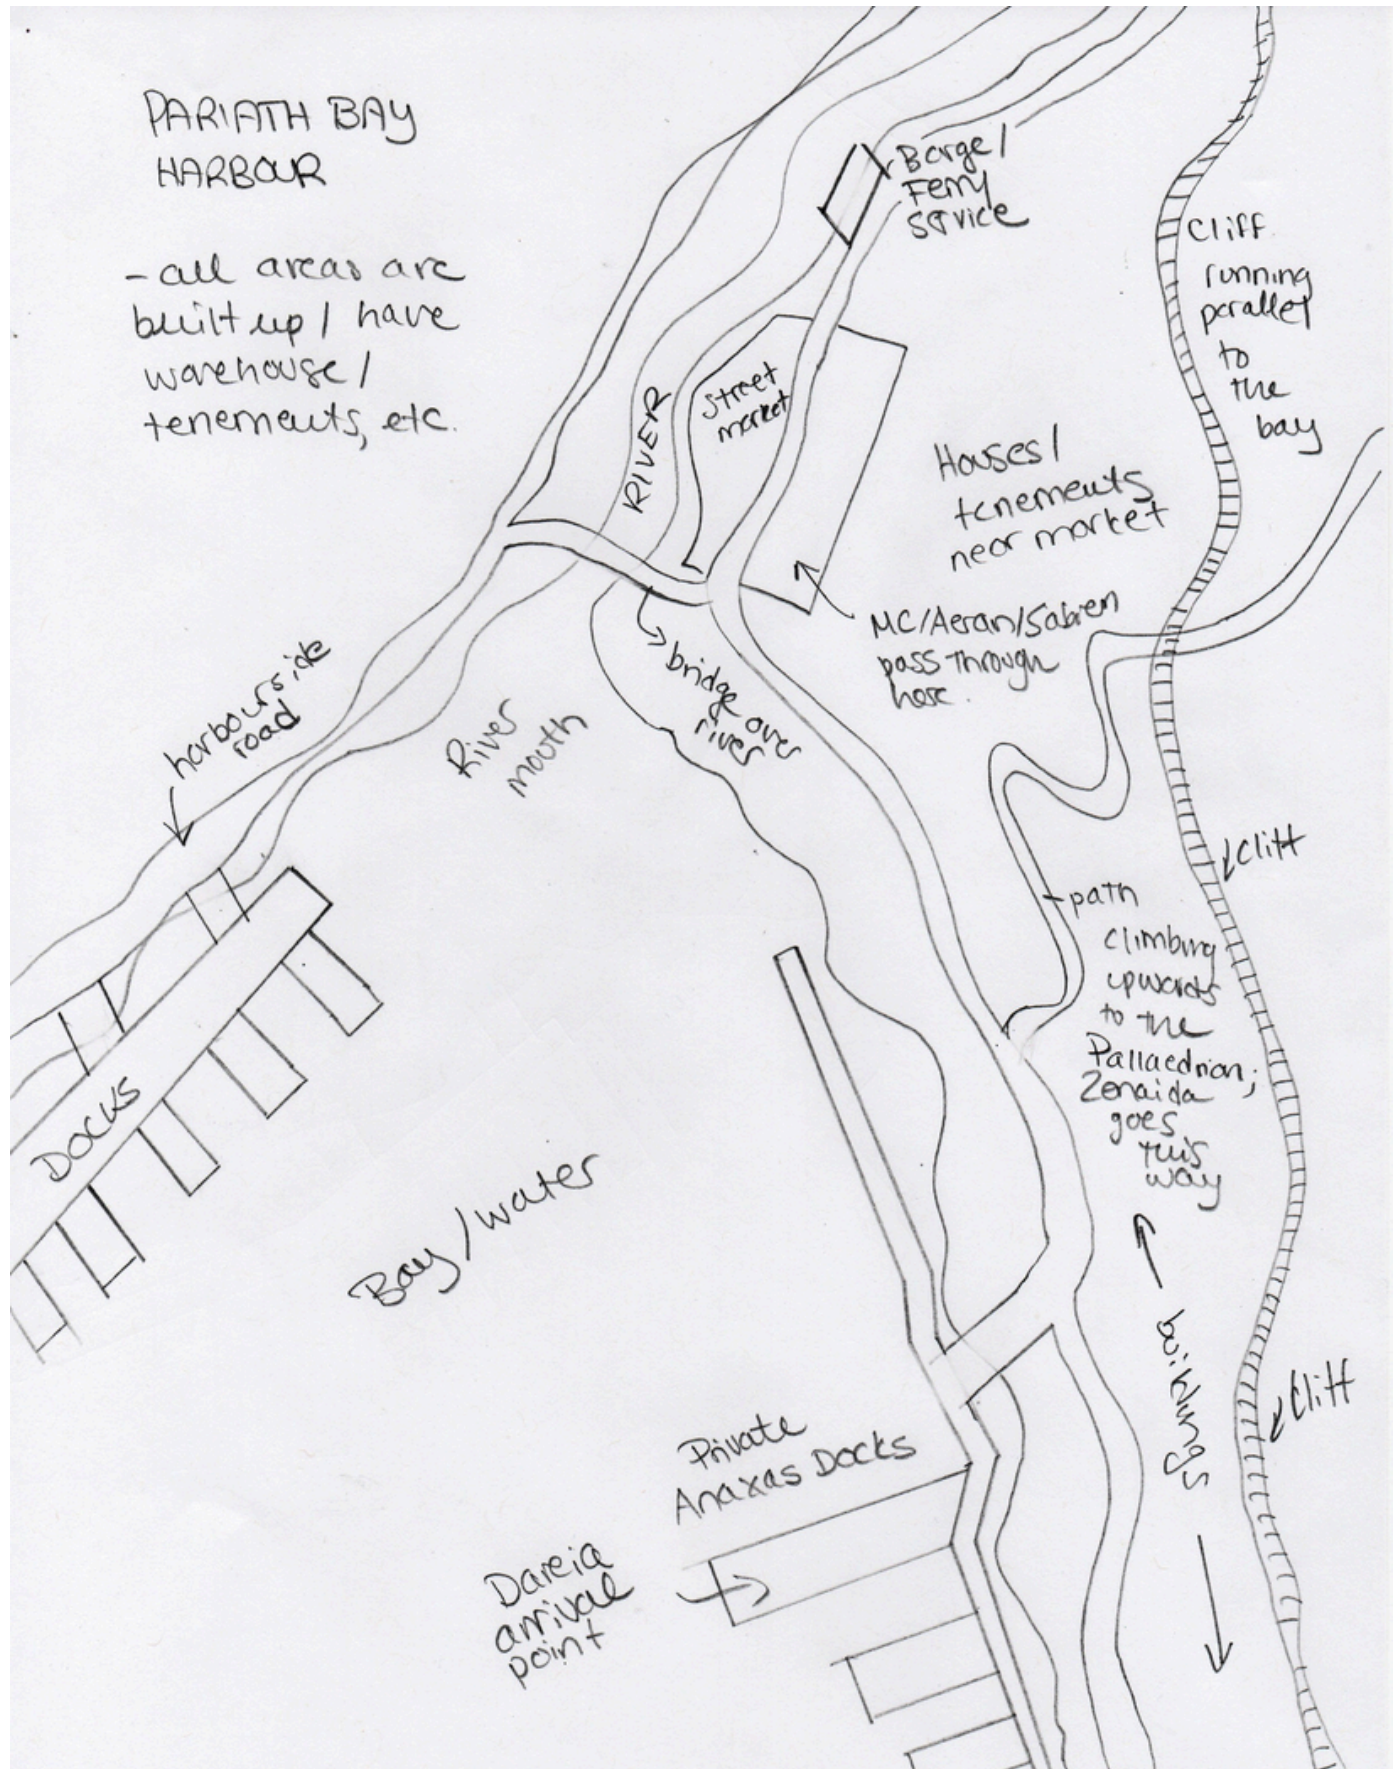 PARIATH BAY
HARBOUR
- all areas are
built up / have
warehouse /
tenements, etc.
Barge /
Ferry
service
Cliff
running
parallel
to
the
bay
Street
market
RIVER
Houses /
tenements
near market
MC/Aeran/Sabien
pass through
here.
harbourside
road
River
mouth
bridge over
river
Cliff
path
climbing
upwards
to the
Pallaedrian;
Zenaida
goes
this
way
DOCKS
Bay / water
buildings
Cliff
Private
Anaxas Docks
Dareia
arrival
point